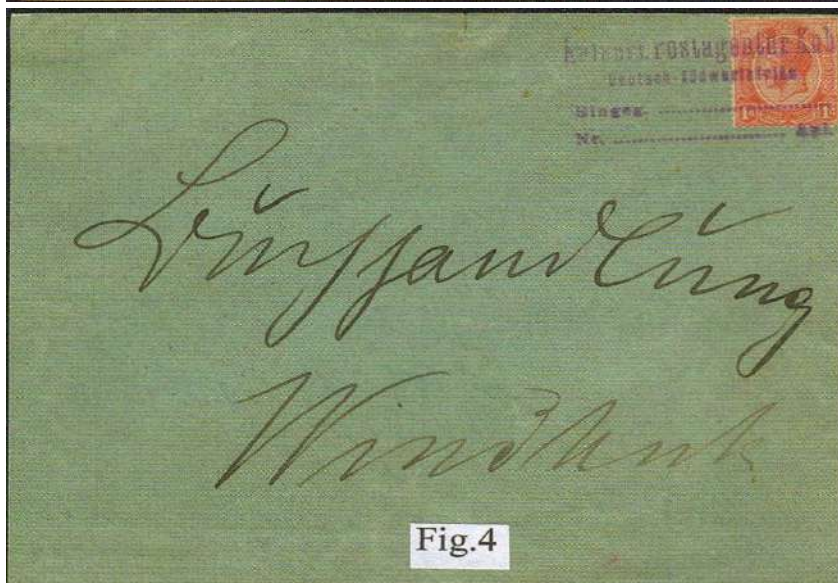 Kaiserl. Postagentur Kub
Deutsch-Südwestafrika
Eingeg.
Nr. Anl.
Buchhandlung
Windhuk
Fig.4